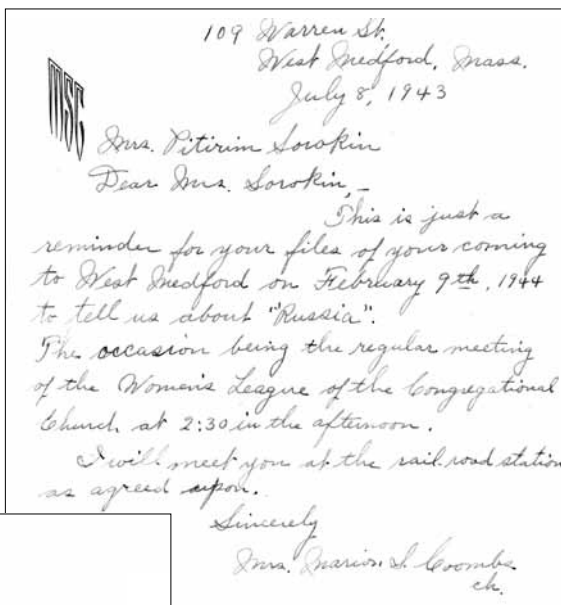 109 Warren St.
West Medford, Mass.
July 8, 1943
MSC
Mrs. Pitirim Sorokin
Dear Mrs. Sorokin,—
This is just a
reminder for your files of your coming
to West Medford on February 9th, 1944
to tell us about "Russia".
The occasion being the regular meeting
of the Women's League of the Congregational
Church at 2:30 in the afternoon.
I will meet you at the rail road station
as agreed upon.
Sincerely
Mrs. Marion S. Coombs
ch.